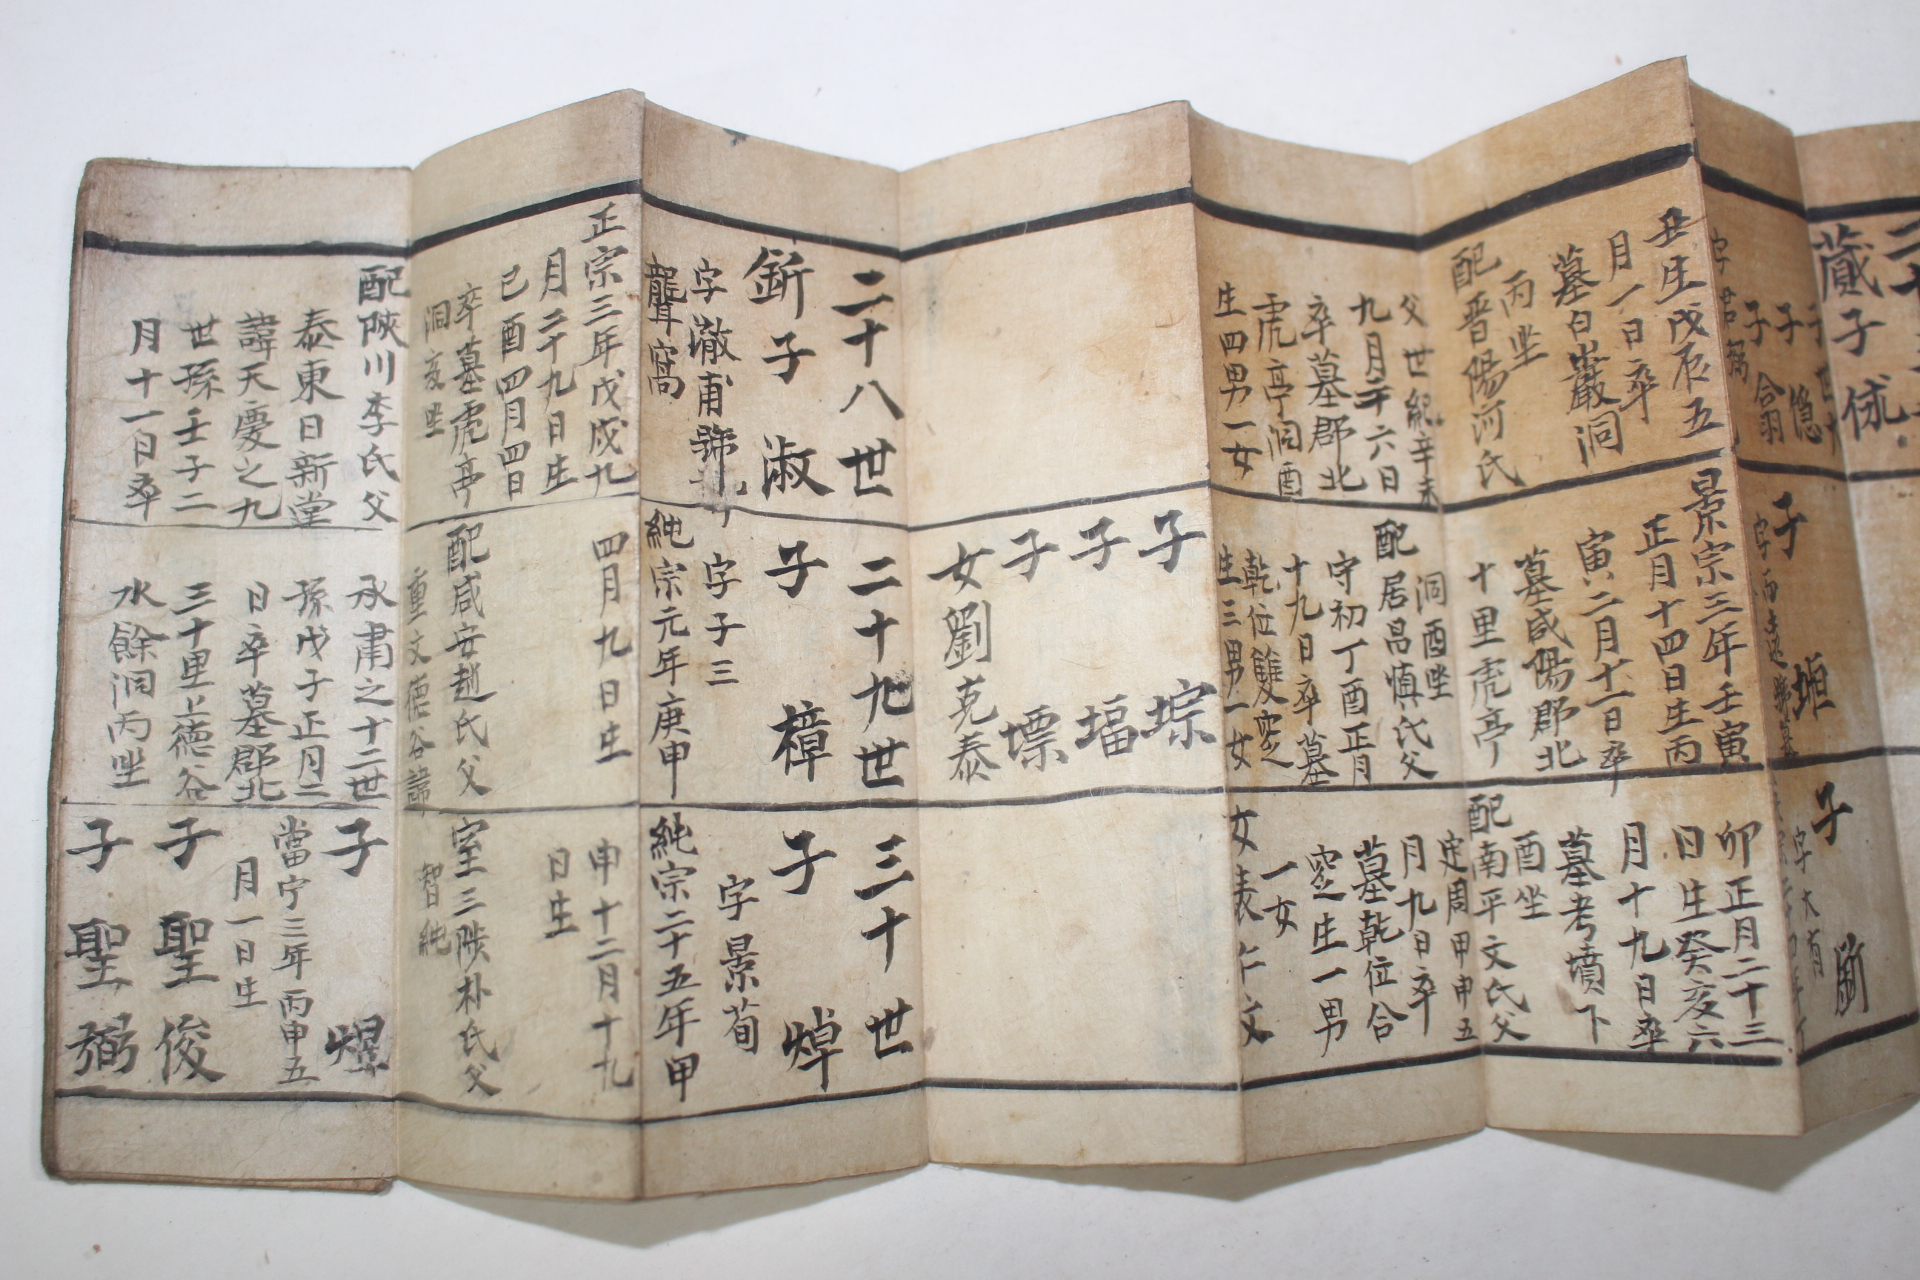 蕆子 俅
丑生戊辰五
月一日卒
墓白巖洞
丙坐
配晋陽河氏
父世紀辛未
九月二十六日
卒墓郡北
虎亭洞酉
生四男一女
二十八世
釿子 淑
字澈甫號
聾窩
正宗三年戊戌九
月二十九日生
己酉四月四日
卒墓虎亭
洞亥坐
配陜川李氏父
泰東日新堂
諱天慶之九
世孫壬子二
月十一日卒
子 垣
景宗三年壬寅
正月十四日生丙
寅二月十一日卒
墓咸陽郡北
十里虎亭
洞酉坐
配居昌慎氏父
守初丁酉正月
十九日卒墓
乾位雙窆
生三男一女
子 堫
子 堛
子
女劉克泰
二十九世
子 樟
字子三
純宗元年庚申
四月九日生
配咸安趙氏父
重文德谷諱
承肅之十二世
孫戊子正月二
日卒墓郡北
三十里上德谷
水餘洞丙坐
子
字大有
卯正月二十三
日生癸亥六
月十九日卒
墓考墳下
酉坐
配南平文氏父
定周甲申五
月九日卒
墓乾位合
窆生一男
一女
女表 文
三十世
子 焯
字景荀
純宗二十五年甲
申十二月十九
日生
室三陟朴氏父
智純
子 煜
當宁三年丙申五
月一日生
子 聖俊
子 聖弼